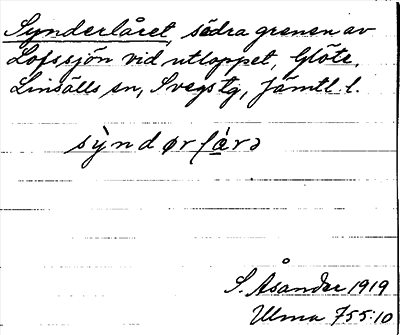 Synderlåret, södra grenen av
Lofssjön vid utloppet, Glöte,
Linsälls sn, Svegs tg, Jämtl. l.
S. Åsander 1919
Ulma 755:10